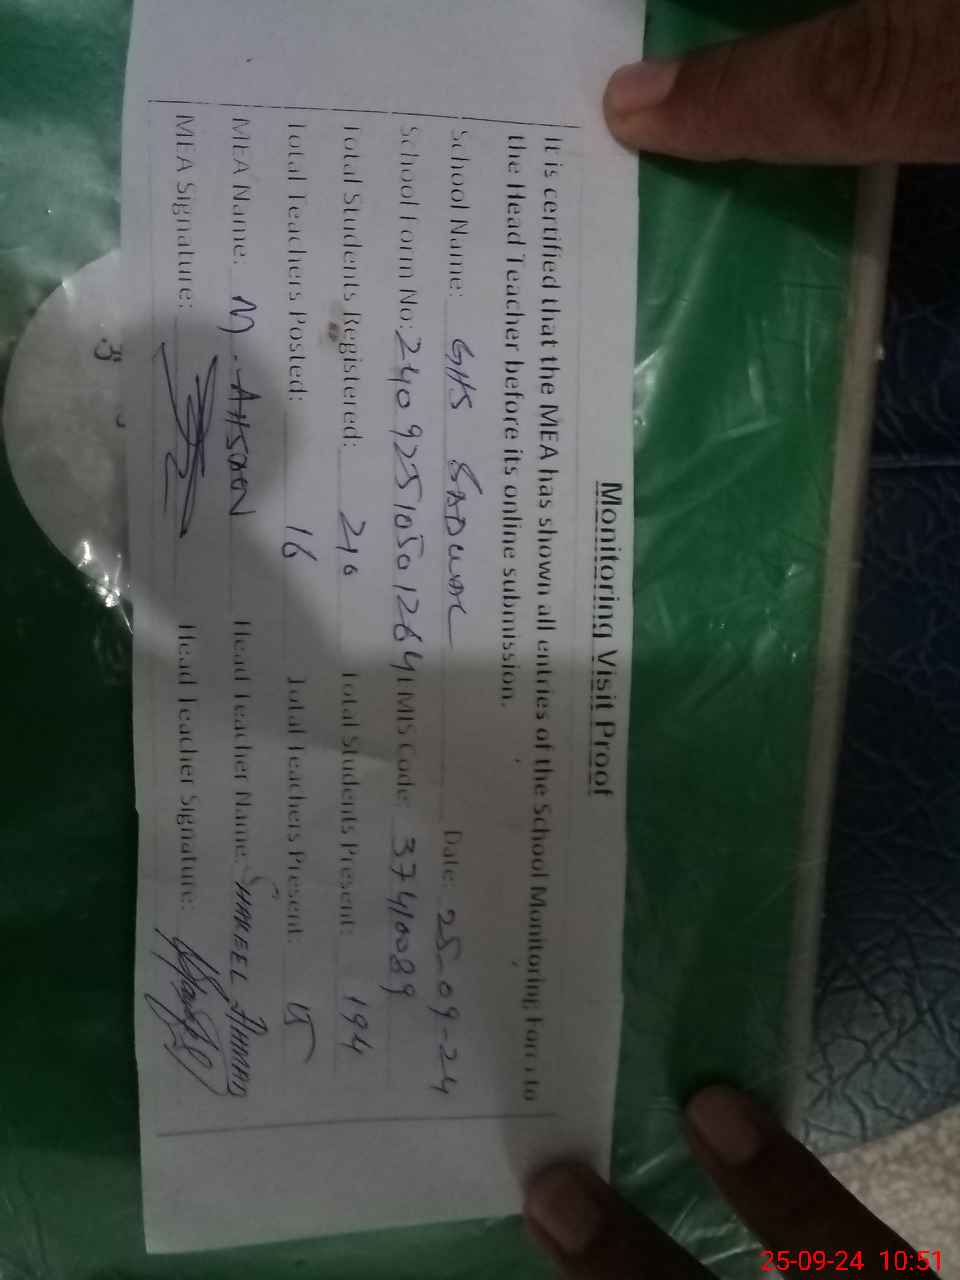 Monitoring Visit Proof
It is certified that the MEA has shown all entries of the School Monitoring Form to
the Head Teacher before its online submission.
School Name: GHS Date: 25-09-24
School Form No: 24092510501264 EMIS Code: 37410089
Total Students Registered: 210 Total Students Present: 194
Total Teachers Posted: 16 Total Teachers Present: 15
MEA Name: M. AHSAN Head Teacher Name: SHAKEEL AHMAD
MEA Signature: Head Teacher Signature:
25-09-24 10:51